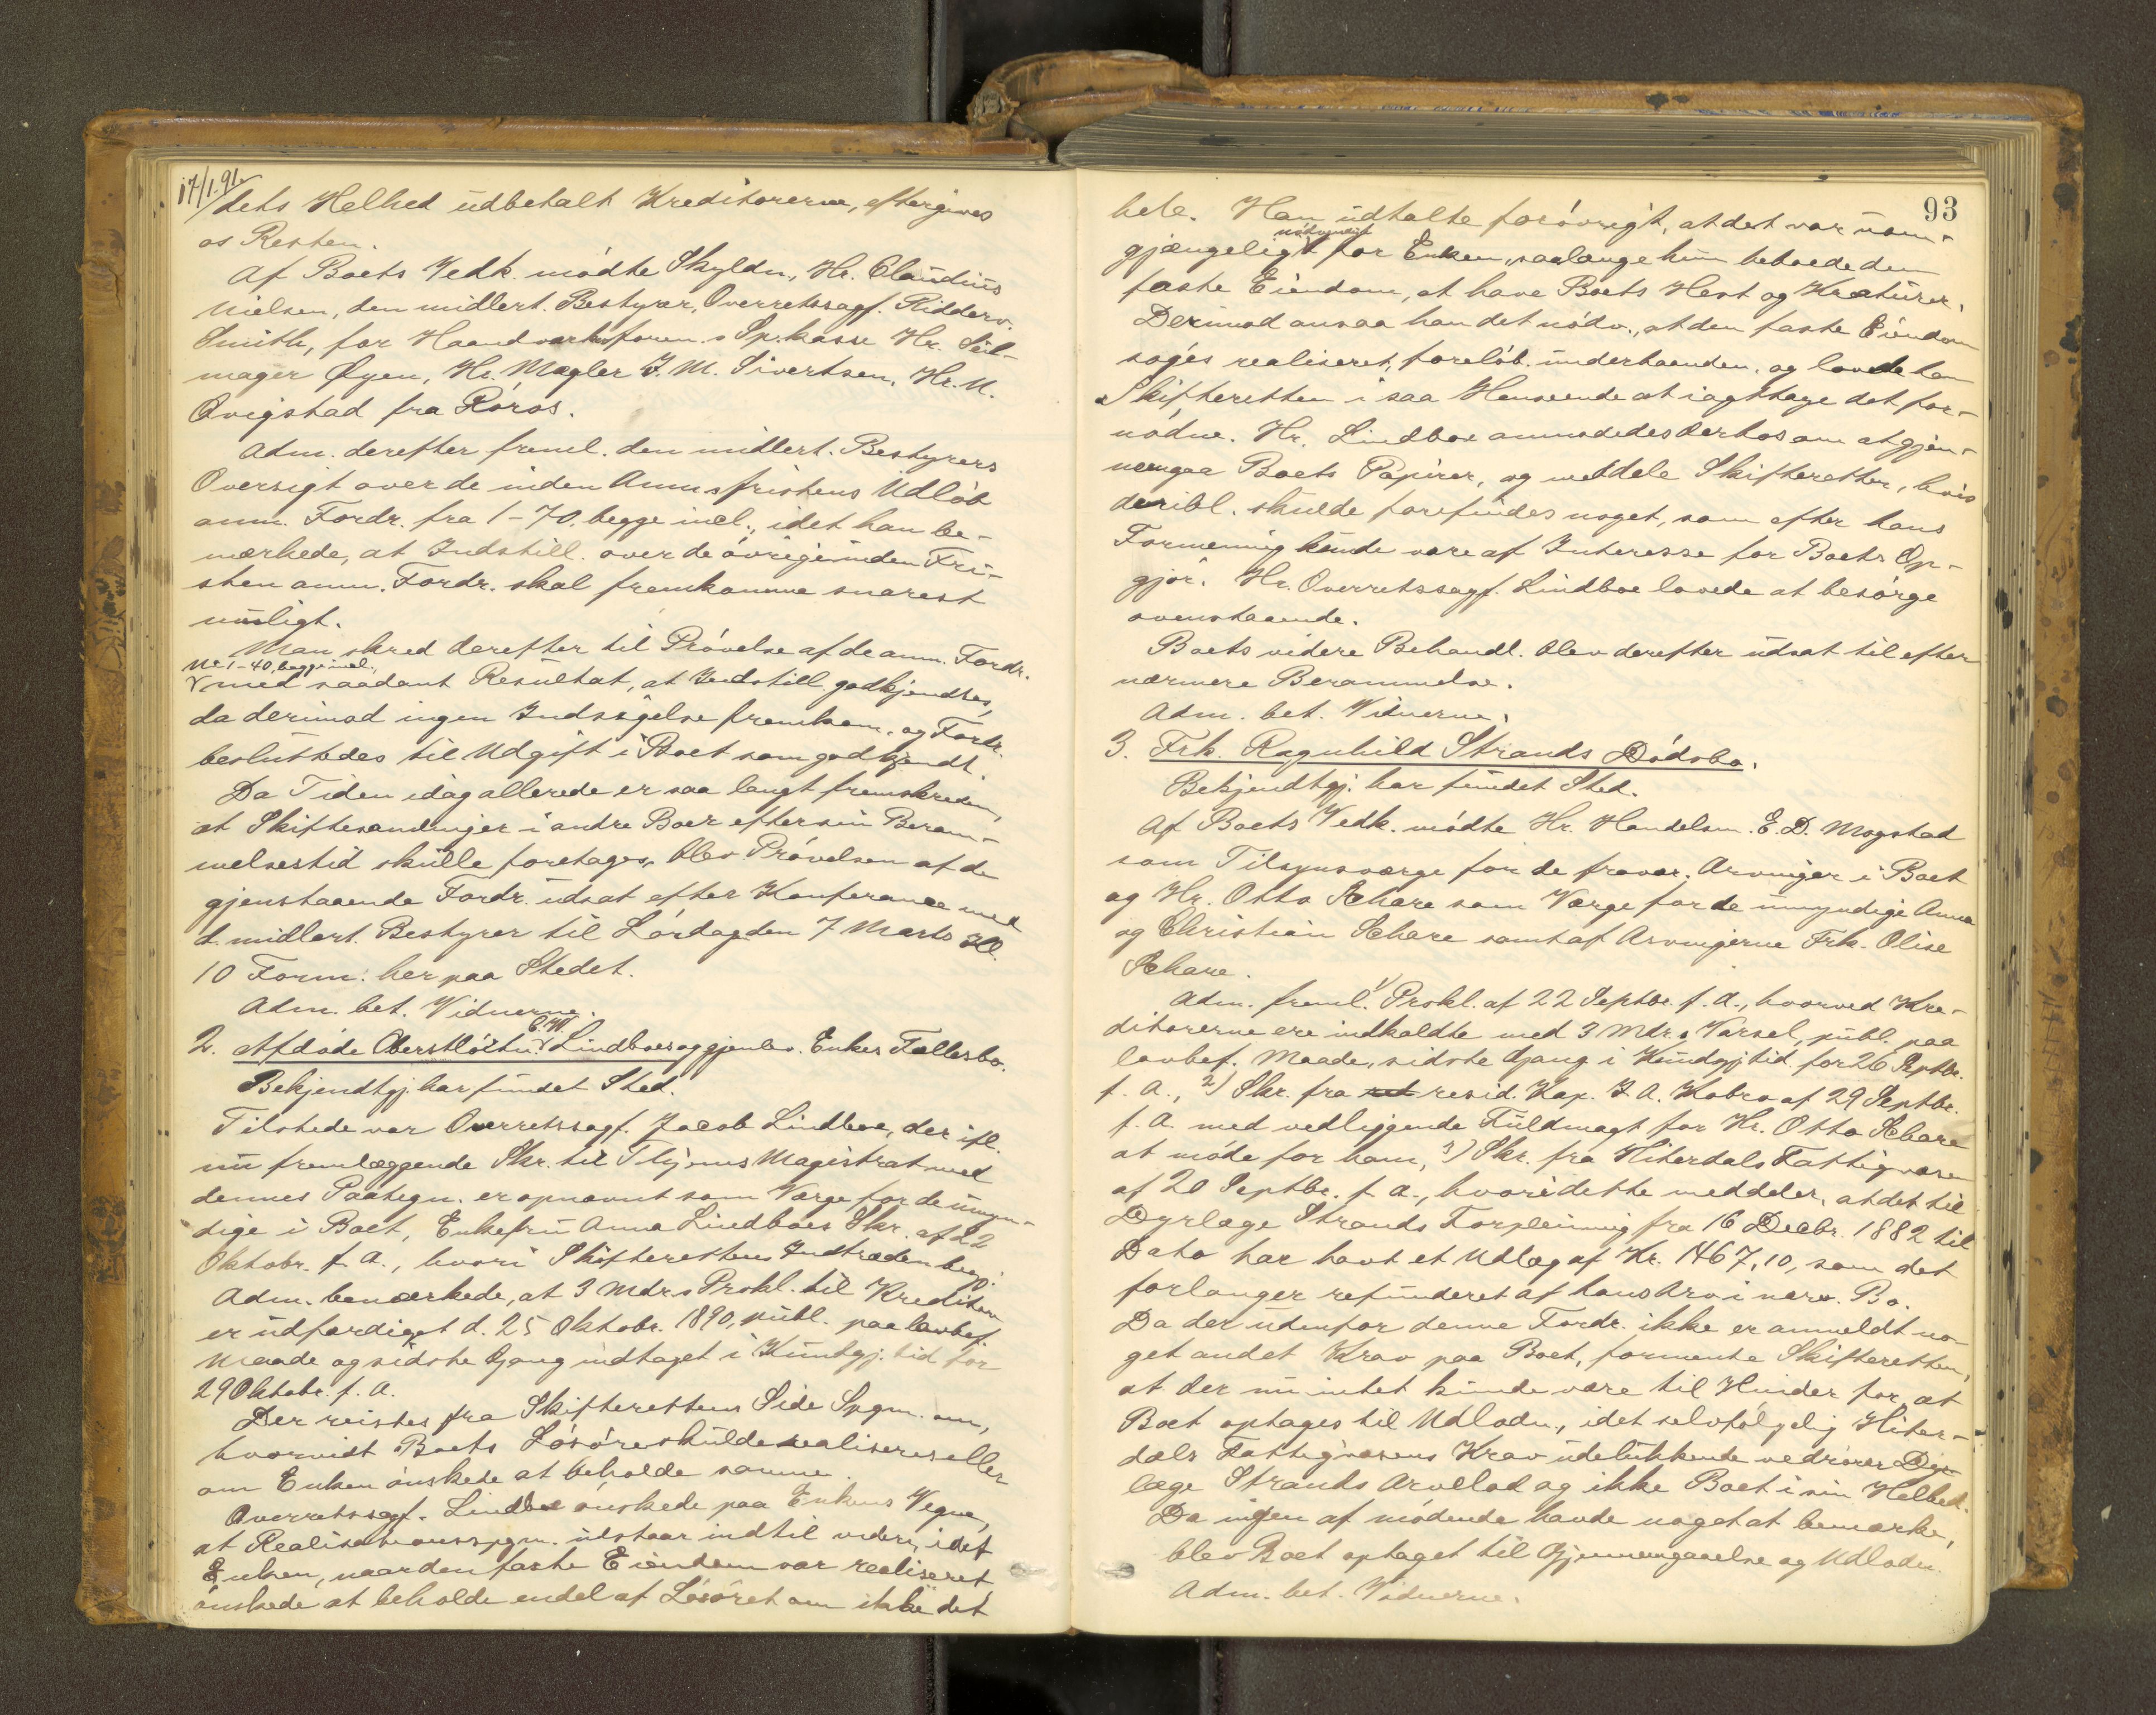 17/1.91.
dets Helhed udbetalt Kreditorerne, eftergives
os Resten.
Af Boets Vedk. mødte Skyldn., Hr. Claudius
Nielsen, den midlert. Bestyrer, Overretssagf. Ridderv.
Smith, for Haandverkerforen.s Sp.kasse Hr. Seil-
mager Øyen, Hr. Mægler J. M. Sivertsen, Hr. N.
Qvigstad fra Røros.
Adm. derefter freml. den midlert. Bestyrers
Oversigt over de inden Anm.sfristens Udløb
anm. Fordr. fra 1-70. begge incl., idet han be-
mærkede, at Indstill. over de øvrige inden Fri-
sten anm. Fordr. skal fremkomme snarest
muligt.
Man skred derefter til Prøvelse af de anm. Fordr.
No. 1-40 begge incl.
med saadant Resultat, at Indstill. godkjendtes,
da derimod ingen Indsigelse fremkom, og Fordr.
besluttedes til Udgift i Boet som godkjendt.
Da Tiden idag allerede er saa langt fremskreden,
at Skiftesamlinger i andre Boer efter sin Beram-
melsestid skulle foretages, blev Prøvelsen af de
gjenstaaende Fordr. udsat efter Konferance med
d. midlert. Bestyrer til Lørdag den 7 Marts Kl.
10 Form. her paa Stedet.
Adm. bet. Vidnerne.
C. W.
2. Afdøde Oberstløitn. Lindboes og gjenlev. Enkes Fællesbo.
Bekjendtgj. har fundet Sted.
Tilstede var Overretssagf. Jacob Lindboe, der ifl.
nu fremlæggende Skr. til Thjems Magistrat med
dennes Paategn. er opnævnt som Værge for de umyn-
dige i Boet, Enkefru Anna Lindboes Skr. af 22
Oktobr. f. A., hvori Skifterettens Indtræden beg.
Adm. bemærkede, at 3 Mdrs Prokl. til Kreditorerne
er udfærdiget d. 25 Oktobr. 1890, publ. paa lovbef.
Maade og sidste Gang indtaget i Kundgj. tid for
29 Oktobr. f. A.
Der reistes fra Skifterettens Side Spgm. om,
hvorvidt Boets Løsøre skulde realiseres eller
om Enken ønskede at beholde samme.
Overretssagf. Lindboe ønskede paa Enkens Vegne,
at Realisationsspgm. udstaar indtil videre, idet
Enken, naar den faste Eiendom var realiseret,
ønskede at beholde endel af Løsøret om ikke det
93
hele. Han udtalte forøvrigt, at det var uom-
nødvendig
gjængeligt for Enken, saalænge hun beboede den
faste Eiendom, at have Boets Hest og Kreaturer.
Derimod ansaa han det nødv., at den faste Eiendom
søges realiseret, foreløb. underhaanden, og lovede han
Skifteretten i saa Henseende at iagttage det for-
nødne. Hr. Lindboe anmodedes derhos om at gjen-
nemgaa Boets Papirer, og meddele Skifteretten, hvis
deribl. skulde forefindes noget, som efter hans
Formening kunde være af Interesse for Boets Op-
gjør. Hr. Overretssagf. Lindboe lovede at besørge
ovenstaaende.
Boets videre Behandl. blev derefter udsat til efter
nærmere Berammelse.
Adm. bet. Vidnerne.
3. Frk. Ragnhild Strands Dødsbo.
Bekjendtgj. har fundet Sted.
Af Boets Vedk. mødte Hr. Handelsm. E. D. Mogstad
som Tilsynsværge for de fravær. Arvinger i Boet
og Hr. Otto Schare som Værge for de umyndige Anna
og Christian Schare samt af Arvingerne Frk. Olise
Schare.
Adm. freml. 1) Prokl. af 22 Septbr. f. A., hvorved Kre-
ditorerne ere indkaldte med 3 Mdr.s Varsel, publ. paa
lovbef. Maade, sidste Gang i Kundgj.tid. for 26 Septbr.
f. A., 2) Skr. fra resid. Kap. J. A. Kobro af 29 Septbr.
f. A. med vedliggende Fuldmagt for Hr. Otto Schare
at møde for ham, 3) Skr. fra Hiterdals Fattigvæsen
af 20 Septbr. f. A., hvori dette meddeler, at det til
Dyrlæge Strands Forpleining fra 16 Decbr. 1882 til
Dato har havt et Udlæg af Kr. 1467,10, som det
forlanger refunderet af hans Arv i nærv. Bo.
Da der udenfor denne Fordr. ikke er anmeldt no-
get andet Krav paa Boet, formente Skifteretten,
at der nu intet kunde være til Hinder for, at
Boet optages til Udlodn., idet selvfølgelig Hiter-
dals Fattigvæsens Krav udelukkende vedrører Dyr-
læge Strands Arvelod og ikke Boet i sin Helhed.
Da ingen af mødende havde noget at bemærke,
blev Boet optaget til Gjennemgaaelse og Udlodn.
Adm. bet. Vidnerne.